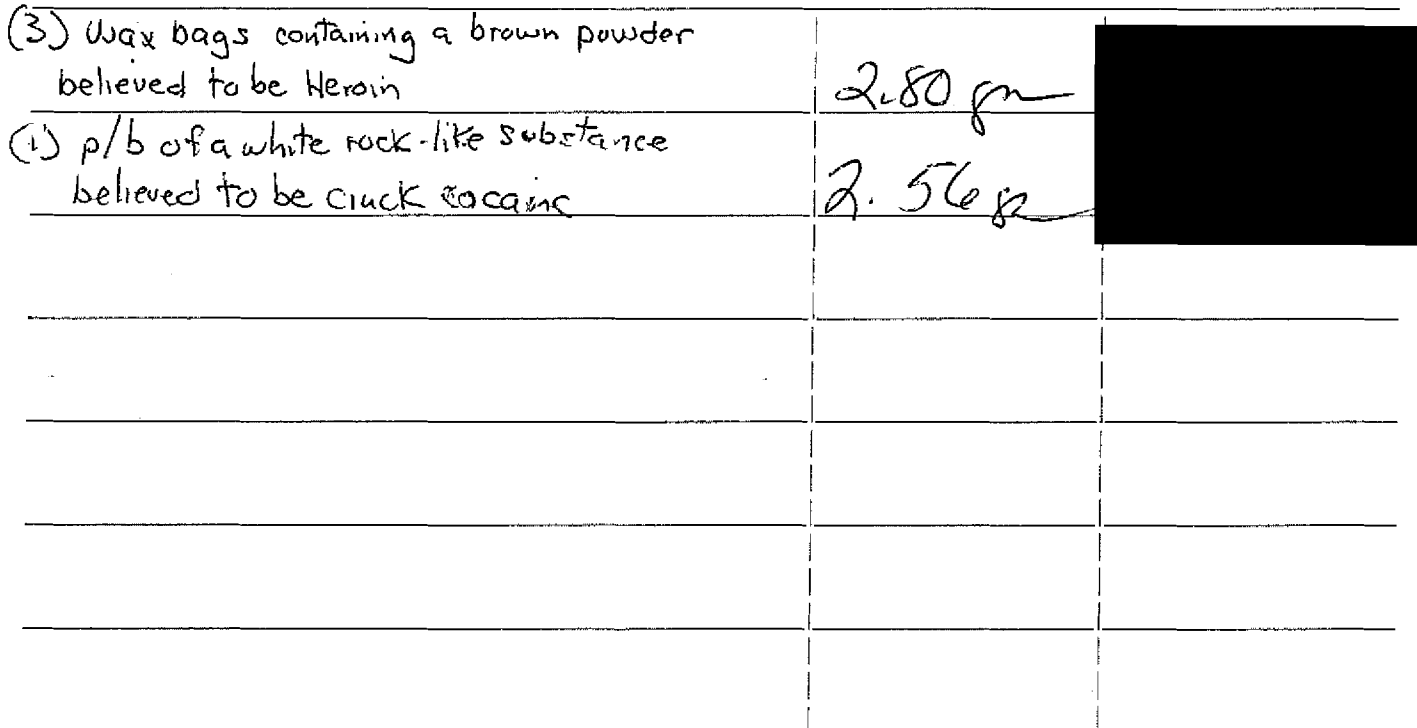 (3) Wax bags containing a brown powder
believed to be Heroin 2.80 gm
(1) p/b of a white rock-like substance
believed to be crack cocaine 2.56 gm